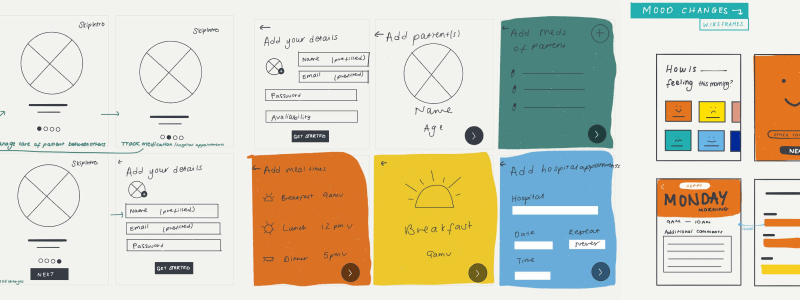 Skip Intro
Skip Intro
manage care of patient between others
Track medication /hospital appointments
Skip Intro
NEXT
Add your details
Name (prefilled)
Email (prefilled)
Password
GET STARTED
Add your details
Name (prefilled)
Email (prefilled)
Password
Availability
GET STARTED
Add patient(s)
Name
Age
Add meds
of patient
Add meal times
Breakfast 9am v
Lunch 12pm v
Dinner 5pm v
Breakfast
9am v
Add hospital appointments
Hospital
Date
Repeat
Never
Time
MOOD CHANGES →
WIREFRAMES
How is
feeling this morning?
NE
MONDAY
MORNING
9AM - 10AM
Additional comments